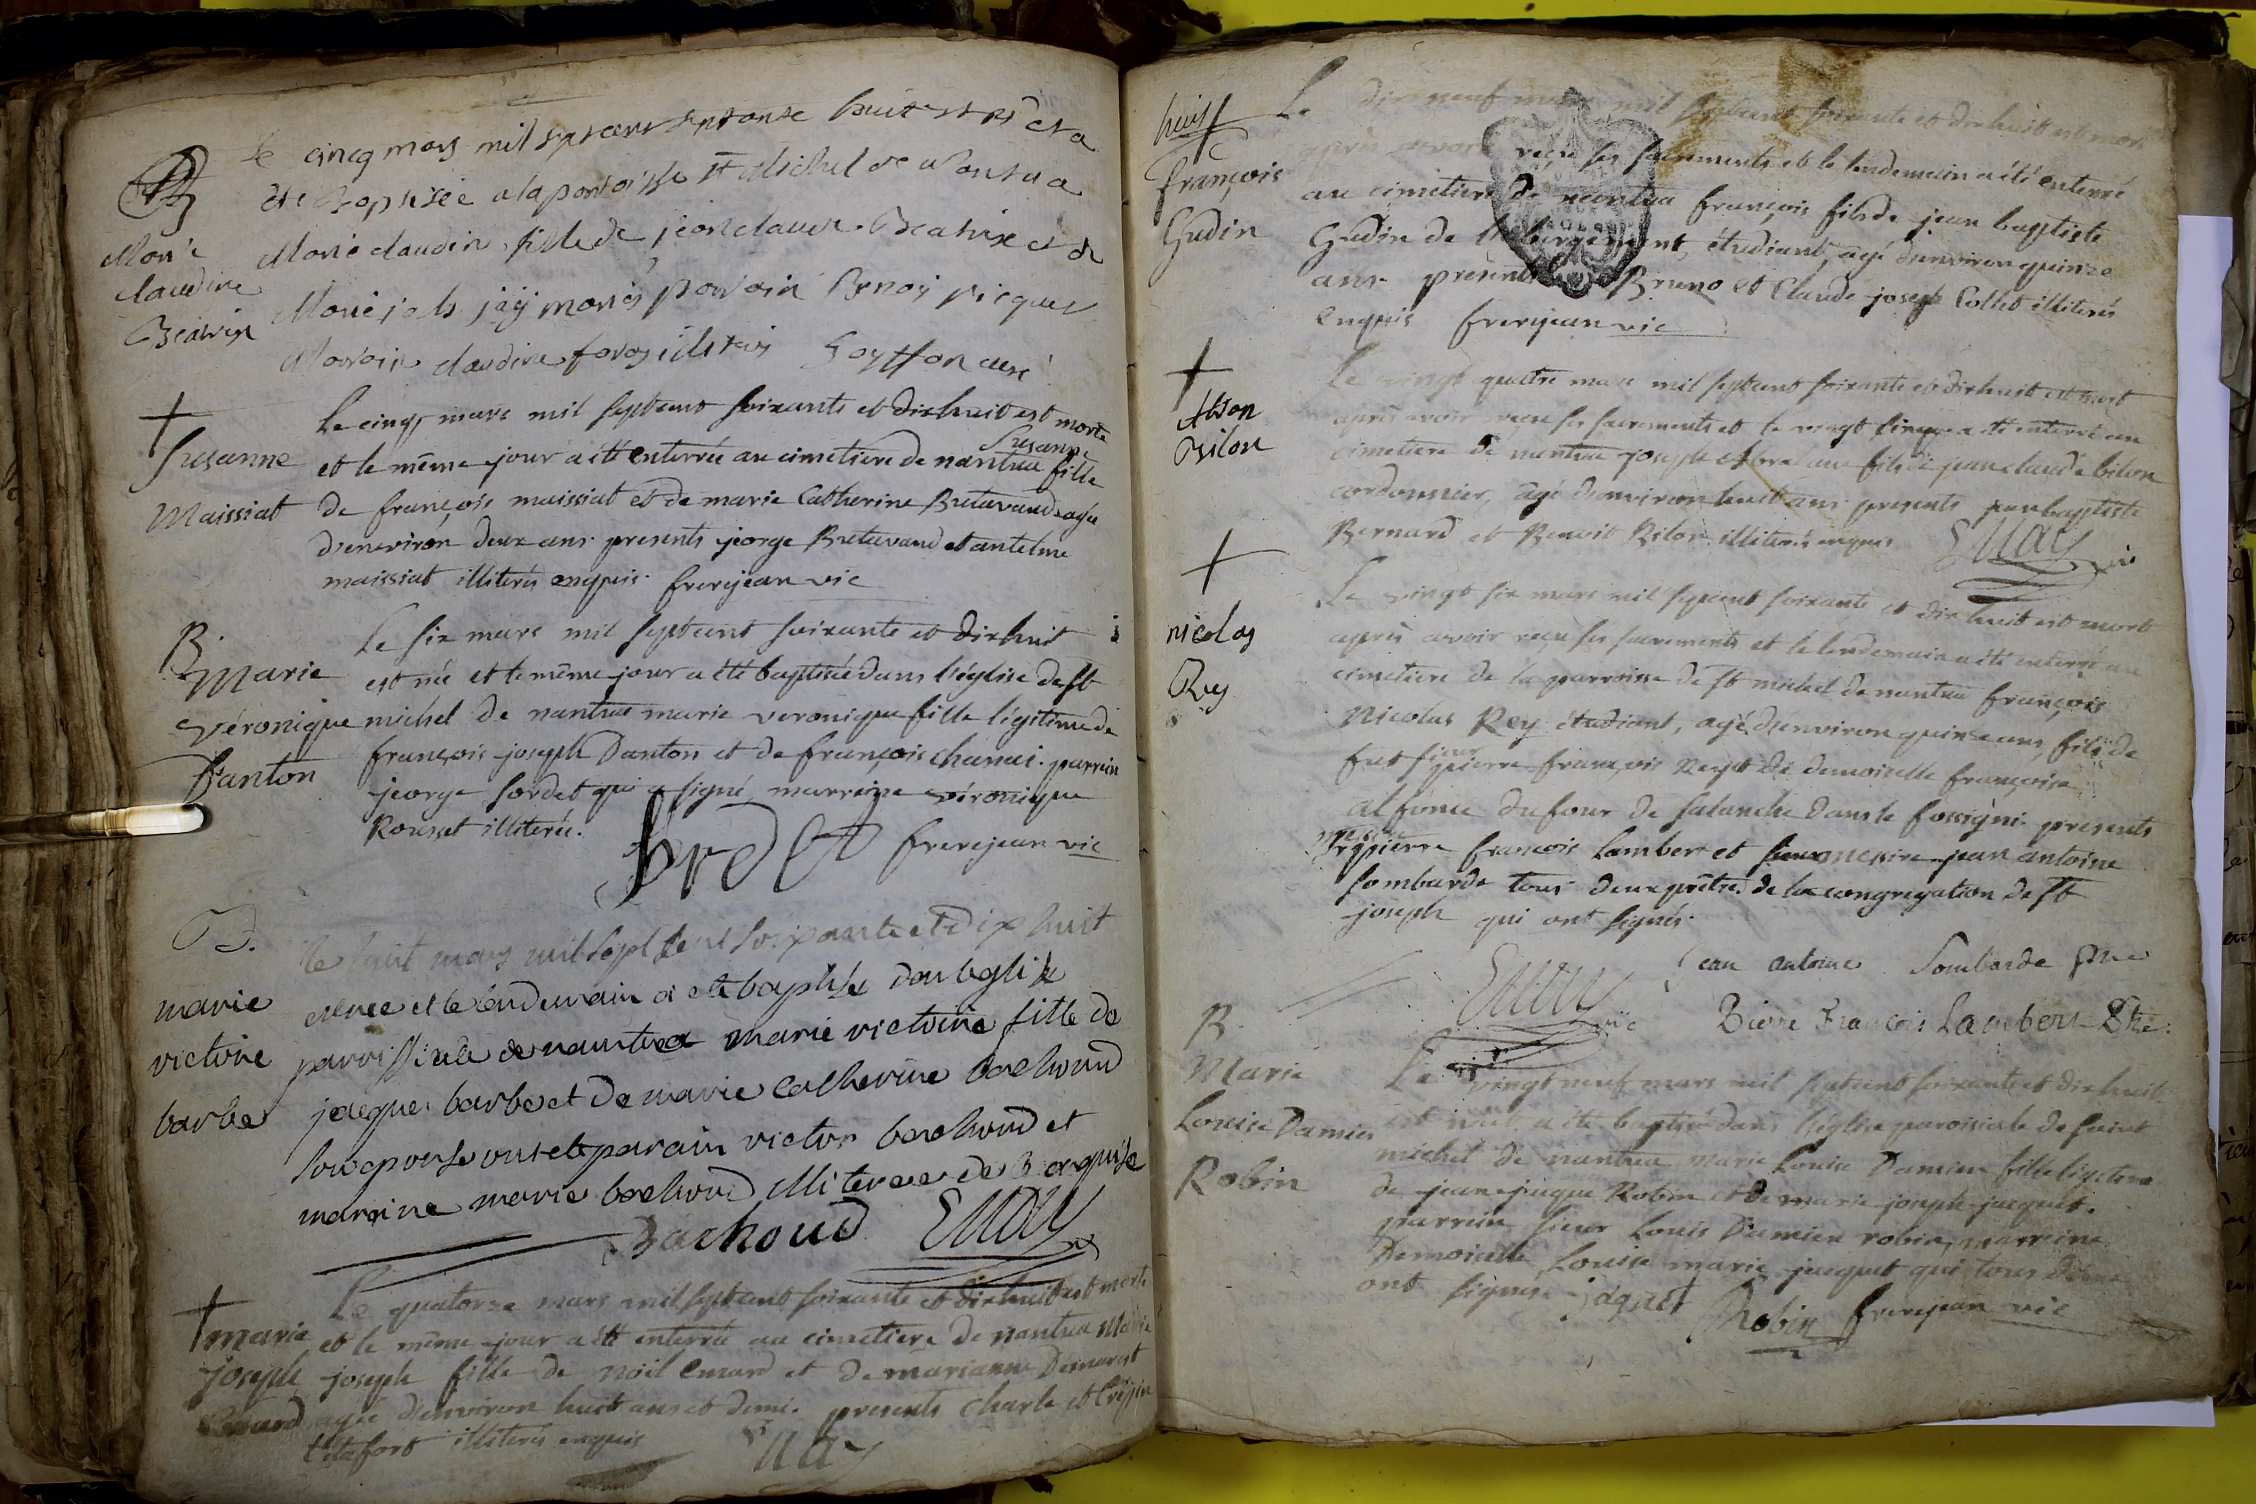 B
Marie
claudine
Béatrix
Le cinq mars mil sept cent septante huit est né et a
été Baptisée a la paroisse St Michel de Nantua
Marie claudin fille de jean claude Beatrix et de
Marie
parain Benoy picquet
Maraine claudine
Goyffon curé
†
Susanne
Maissiat
Le cinq mars mil septcent soixante et dixhuit est morte
et le même jour a été enterrée au cimetiere de nantua Susanne fille
de françois maissiat et de marie Catherine Butavand agée
d'environ deux ans. presents george Butavand et antelme
maissiat illiterés enquis. frerejean vic
B.
Marie
véronique
Danton
Le six mars mil septcent soixante et dixhuit
est née et le même jour a été baptisée dans l'église de St
michel de nantua marie veronique fille légitime de
françois joseph Danton et de françois chanai. parrein
george Sordet qui a signé, marreine véronique
Rousset illiterée.
Sordet frerejean vic
B.
marie
victoire
barbe
le huit mars mil sept cent soixante et dix huit
est née et le lendemain a eté baptisée dans leglise
parroissiale de nantua marie victoire fille de
jacque barbe et de marie catherine bachoud
son epouse parain victor bachoud et
maraine marie bachoud illiteree de ce enquise
Bachoud Emay
†
marie
joseph
Emard
Le quatorze mars mil septcent soixante et dixhuit est morte
et le même jour a été enterrée au cimetiere de nantua Marie
joseph fille de noël Emard et de marianne Demarest
agée d'environ huit ans et demi. presents Charle et Crépin
tetafort illiterés enquis
huit
françois
Gudin
Le dix neuf mars mil septcent soixante et dixhuit est mort
après avoir reçu ses sacrements et le lendemain a été enterré
au cimetiere de nantua françois fils de jean baptiste
Gudin de étudiant, agé d'environ quinze
ans. presents Bruno et Claude joseph Collet illiterés
Enquis frerejean vic
†
Bilon
Le vingt quatre mars mil septcent soixante et dixhuit est mort
après avoir reçu ses sacrements et le vingt cinq a été enterré au
cimetiere de nantua joseph fils de jean claude bilon
cordonnier, agé d'environ huit ans. presents jean baptiste
Bernard et Benoit Bilon illiterés enquis Emay vic
†
nicolas
Rey
Le vingt six mars mil septcent soixante et dixhuit est mort
après avoir reçu ses sacrements et le lendemain a été enterré au
cimetiere de la parroisse de St michel de nantua françois
Nicolas Rey étudiant, agé d'environ quinze ans, fils de
sieur pierre françois Rey et de demoiselle françoise
du four de Salanche dans le fossigni. presents
pierre françois Lambert et jean antoine
Sombarde tous deux prêtres de la congregation de St
joseph qui ont signés.
jean antoine Sombarde
Emay vic Pierre François Lambert
B
Marie
Louise Damien
Robin
Le vingt neuf mars mil septcent soixante et dixhuit
est née a été baptisée dans l'église paroissiale de saint
michel de nantua marie Louise Damien fille legitime
de jean jaque Robin et de marie joseph jacquet.
parrein sieur Louis Damien robin, marreine
Demoiselle Louise marie jacquet qui tous
ont signés jaquet Robin frerejean vic